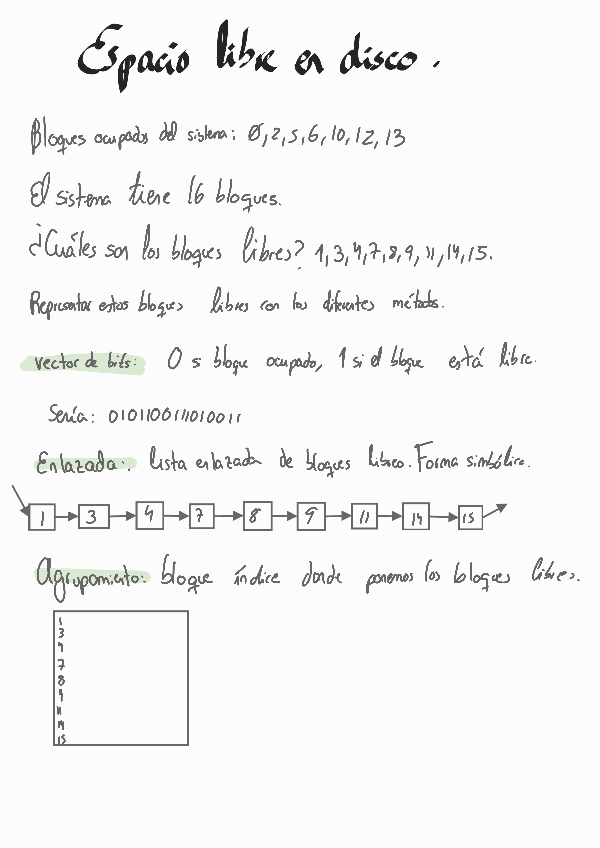 Espacio libre en disco.
Bloques ocupados del sistema: 0, 2, 5, 6, 10, 12, 13
El sistema tiene 16 bloques.
¿Cuáles son los bloques libres? 1, 3, 4, 7, 8, 9, 11, 14, 15.
Representar estos bloques libres con los diferentes métodos.
vector de bits: 0 si bloque ocupado, 1 si el bloque está libre.
Sería: 0101100111010011
Enlazada: lista enlazada de bloques libres. Forma simbólica.
1 3 4 7 8 9 11 14 15
Agrupamiento: bloque índice donde ponemos los bloques libres.
1
3
4
7
8
9
11
14
15